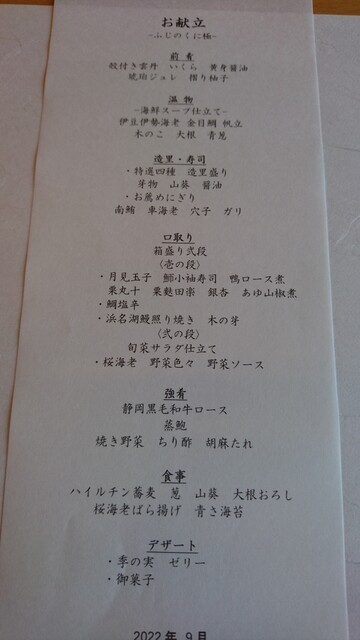 お献立
-ふじのくに極-
前肴
殻付き雲丹 いくら 黄身醤油
琥珀ジュレ 摺り柚子
温物
-海鮮スープ仕立て-
伊豆伊勢海老 金目鯛 帆立
木のこ 大根 青葱
造里・寿司
・特選四種 造里盛り
芽物 山葵 醤油
・お薦めにぎり
南鮪 車海老 穴子 ガリ
口取り
箱盛り弐段
〈壱の段〉
・月見玉子 鰤小袖寿司 鴨ロース煮
栗丸十 粟麩田楽 銀杏 あゆ山椒煮
・鯛塩辛
・浜名湖鰻照り焼き 木の芽
〈弐の段〉
旬菜サラダ仕立て
・桜海老 野菜色々 野菜ソース
強肴
静岡黒毛和牛ロース
蒸鮑
焼き野菜 ちり酢 胡麻たれ
食事
ハイルチン蕎麦 葱 山葵 大根おろし
桜海老ばら揚げ 青さ海苔
デザート
・季の実 ゼリー
・御菓子
2022年 9月